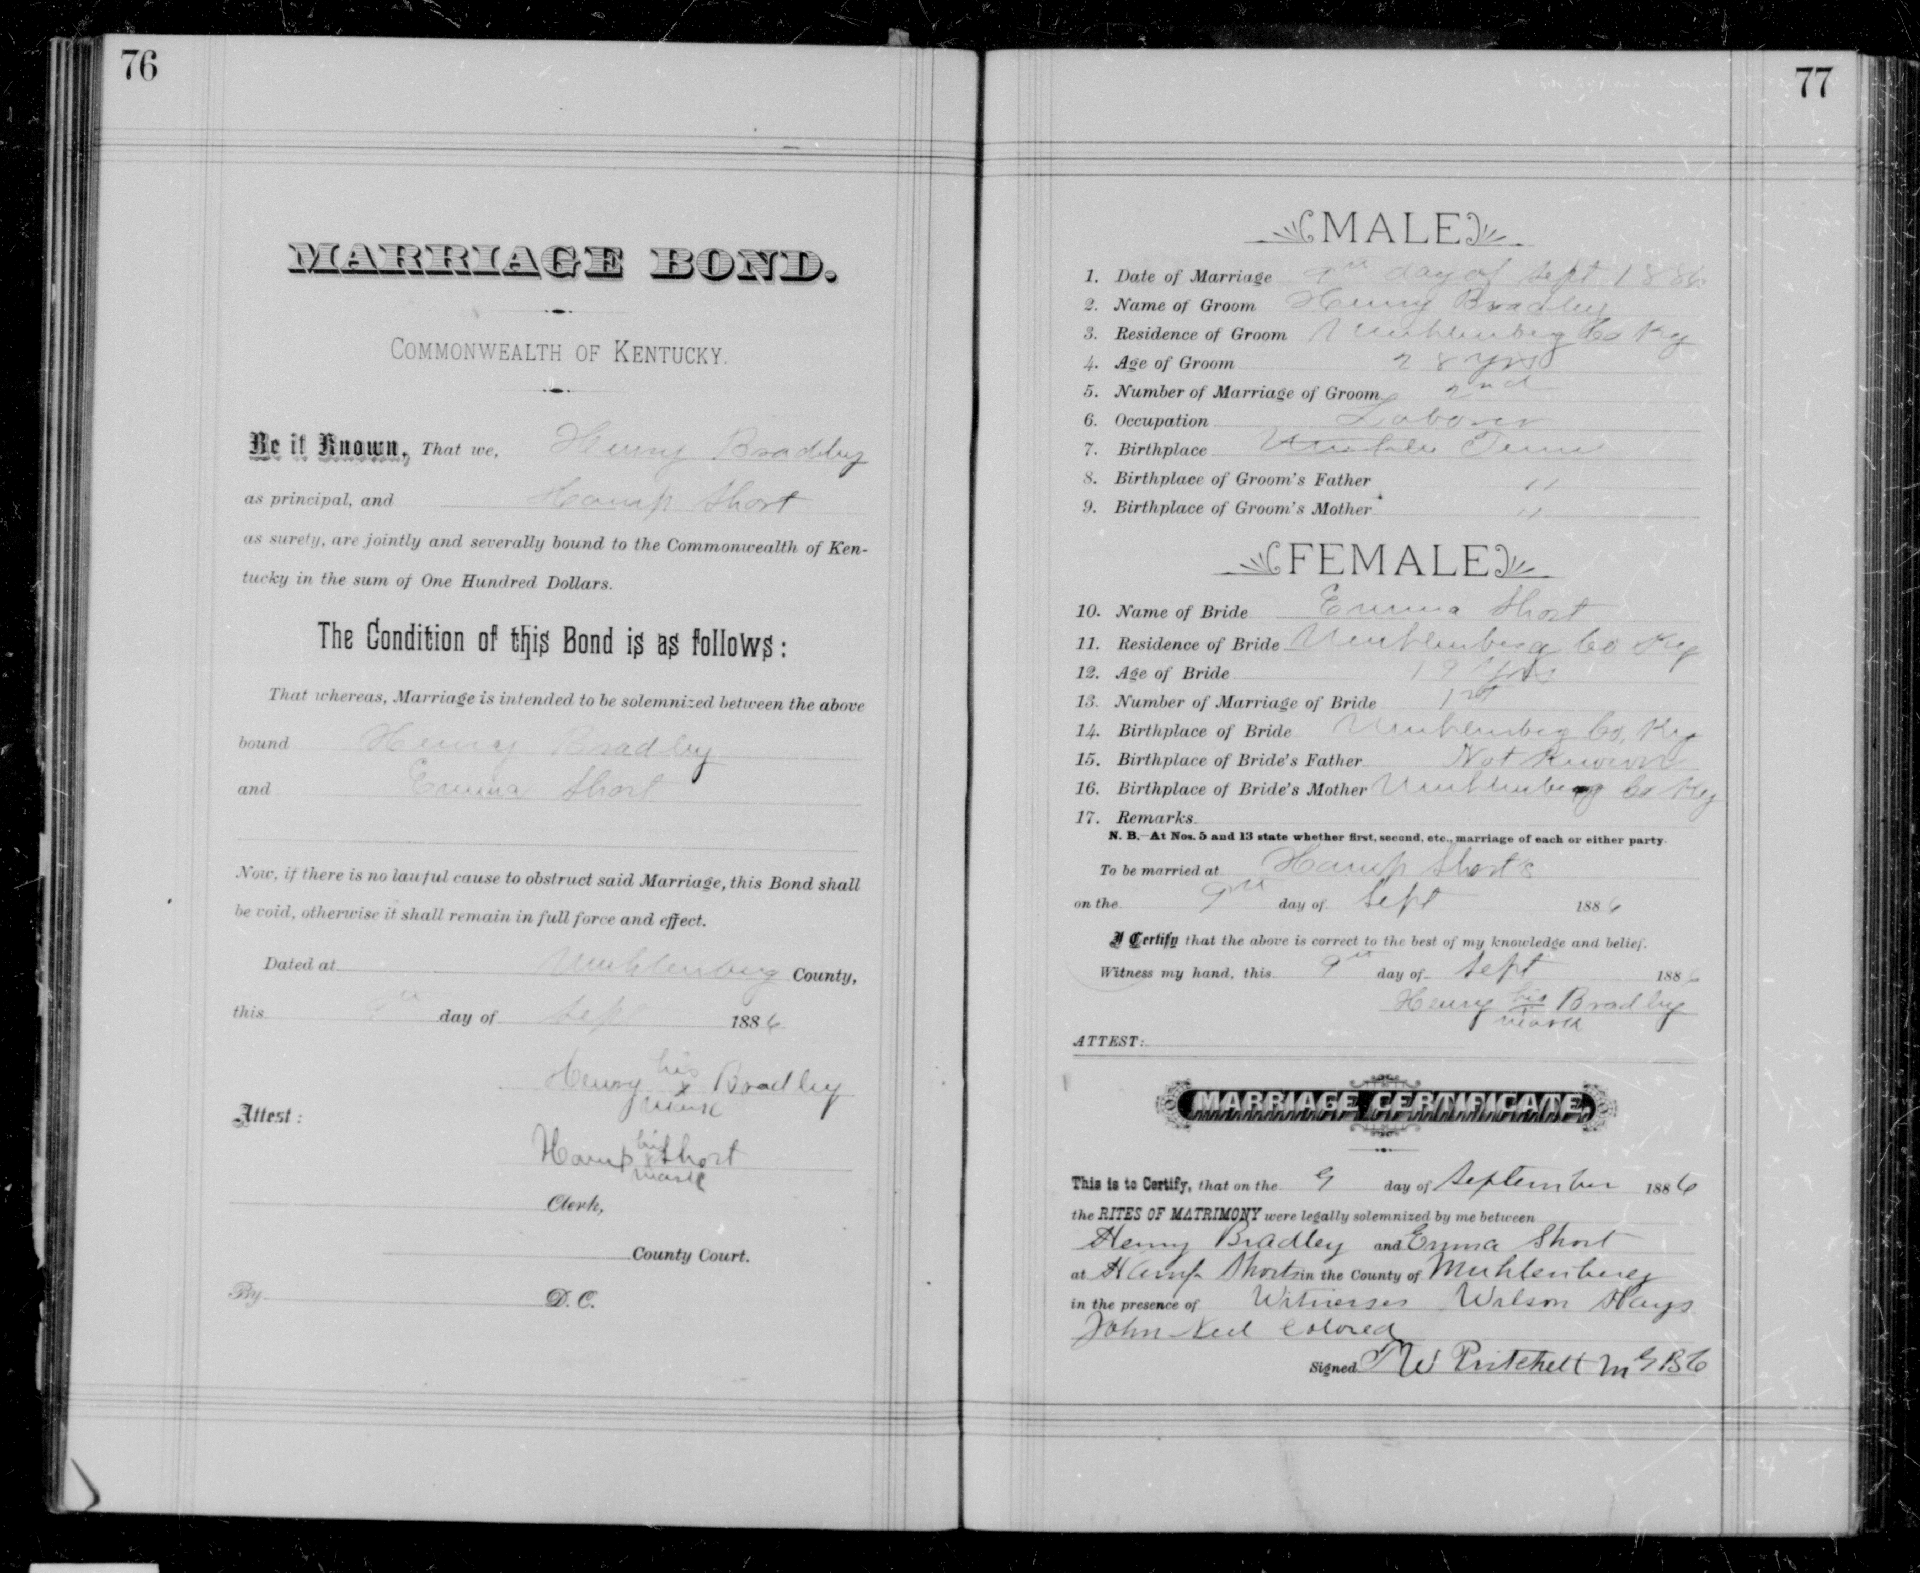 76
MARRIAGE BOND.
COMMONWEALTH OF KENTUCKY.
Be it Known, That we, Henry Bradley
as principal, and Hamp Short
as surety, are jointly and severally bound to the Commonwealth of Ken-
tucky in the sum of One Hundred Dollars.
The Condition of this Bond is as follows:
That whereas, Marriage is intended to be solemnized between the above
bound Henry Bradley
and Emma Short
Now, if there is no lawful cause to obstruct said Marriage, this Bond shall
be void, otherwise it shall remain in full force and effect.
Dated at Muhlenberg County,
this 9th day of Sept 1886
Henry his Bradley
x
mark
Attest:
Hamp his Short
x
mark
Clerk,
County Court.
By D. C.
77
MALE
1. Date of Marriage 9th day of Sept 1886
2. Name of Groom Henry Bradley
3. Residence of Groom Muhlenberg Co Ky
4. Age of Groom 28 yrs
5. Number of Marriage of Groom 2nd
6. Occupation Laborer
7. Birthplace Tenn
8. Birthplace of Groom's Father "
9. Birthplace of Groom's Mother "
FEMALE
10. Name of Bride Emma Short
11. Residence of Bride Muhlenberg Co Ky
12. Age of Bride 19 Yrs
13. Number of Marriage of Bride 1st
14. Birthplace of Bride Muhlenberg Co, Ky
15. Birthplace of Bride's Father Not Known
16. Birthplace of Bride's Mother Muhlenberg Co Ky
17. Remarks
N. B.—At Nos. 5 and 13 state whether first, second, etc., marriage of each or either party.
To be married at Hamp Short's
on the 9th day of Sept 1886
I Certify that the above is correct to the best of my knowledge and belief.
Witness my hand, this 9th day of Sept 1886
Henry his Bradley
x
mark
ATTEST:
MARRIAGE CERTIFICATE.
This is to Certify, that on the 9 day of September 1886
the RITES OF MATRIMONY were legally solemnized by me between
Henry Bradley and Emma Short
at Hamp Shorts in the County of Muhlenberg
in the presence of Witnesses Wilson Hays
John Neel Colored
Signed W Pritchett